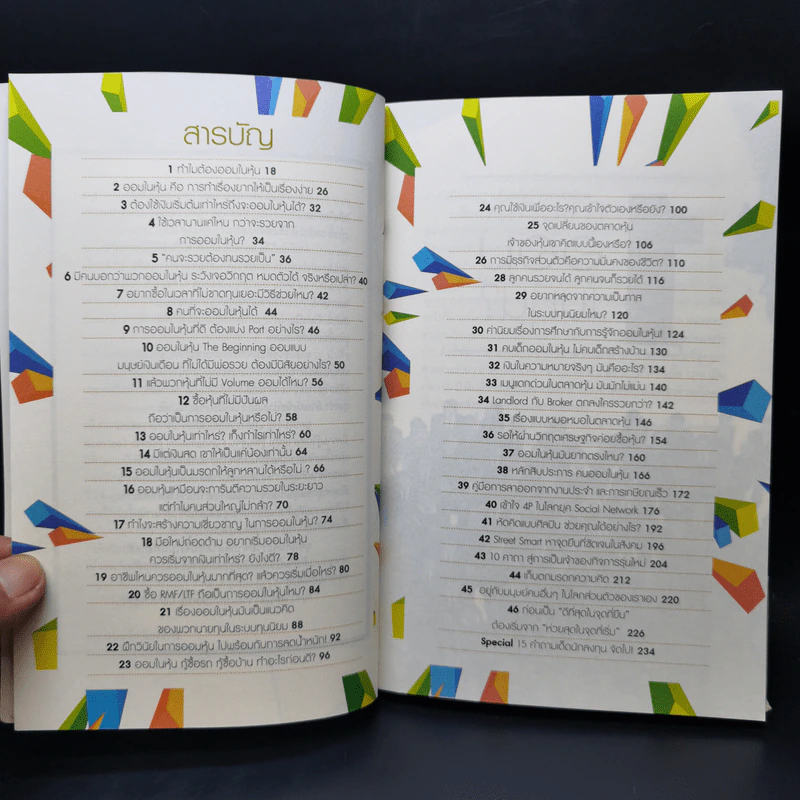 สารบัญ
1 ทำไมต้องออมในหุ้น 18
2 ออมในหุ้น คือ การทำเรื่องยากให้เป็นเรื่องง่าย 26
3 ต้องใช้เงินเริ่มต้นเท่าไหร่ถึงจะออมในหุ้นได้? 32
4 ใช้เวลานานแค่ไหน กว่าจะรวยจาก
การออมในหุ้น? 34
5 "คนจะรวยต้องทนรวยเป็น" 36
6 มีคนบอกว่าพวกออมในหุ้น ระวังเจอวิกฤต หมดตัวได้ จริงหรือเปล่า? 40
7 อยากซื้อในเวลาที่ไม่ขาดทุนเยอะมีวิธีช่วยไหม? 42
8 คนที่จะออมในหุ้นได้ 44
9 การออมในหุ้นที่ดี ต้องแบ่ง Port อย่างไร? 46
10 ออมในหุ้น The Beginning ออมแบบ
มนุษย์เงินเดือน ที่ไม่ได้มีพ่อรวย ต้องมีนิสัยอย่างไร? 50
11 แล้วพวกหุ้นที่ไม่มี Volume ออมได้ไหม? 56
12 ซื้อหุ้นที่ไม่มีปันผล
ถือว่าเป็นการออมในหุ้นหรือไม่? 58
13 ออมในหุ้นเท่าไหร่? เก็งกำไรเท่าไหร่? 60
14 มีแต่เงินสด เขาให้เป็นแค่น้องเท่านั้น 64
15 ออมในหุ้นเป็นมรดกให้ลูกหลานได้หรือไม่ ? 66
16 ออมหุ้นเหมือนจะการันตีความรวยในระยะยาว
แต่ทำไมคนส่วนใหญ่ไม่กล้า? 70
17 ทำไงจะสร้างความเชี่ยวชาญ ในการออมในหุ้น? 74
18 มือใหม่ถอดด้าม อยากเริ่มออมในหุ้น
ควรเริ่มจากเงินเท่าไหร่? ยังไงดี? 78
19 อาชีพไหนควรออมในหุ้นมากที่สุด? แล้วควรเริ่มเมื่อไหร่? 80
20 ซื้อ RMF/LTF ถือเป็นการออมในหุ้นไหม? 84
21 เรื่องออมในหุ้นมันเป็นแนวคิด
ของพวกนายทุนในระบบทุนนิยม 88
22 ฝึกวินัยในการออมหุ้น ไปพร้อมกับการลดน้ำหนัก! 92
23 ออมในหุ้น กู้ซื้อรถ กู้ซื้อบ้าน ทำอะไรก่อนดี? 96
24 คุณใช้เงินเพื่ออะไร?คุณเข้าใจตัวเองหรือยัง? 100
25 จุดเปลี่ยนของตลาดหุ้น
เจ้าของหุ้นเขาคิดแบบนี้เองหรือ? 106
26 การมีธุรกิจส่วนตัวคือความมั่นคงของชีวิต? 110
28 ลูกคนรวยจนได้ ลูกคนจนก็รวยได้ 116
29 อยากหลุดจากความเป็นทาส
ในระบบทุนนิยมไหม? 120
30 ค่านิยมเรื่องการศึกษากับการรู้จักออมในหุ้น! 124
31 คบเด็กออมในหุ้น ไม่คบเด็กสร้างบ้าน 130
32 เงินในความหมายจริงๆ มันคืออะไร? 134
33 เมนูแตกด่วนในตลาดหุ้น มันมักไม่แม่น 140
34 Landlord กับ Broker ตกลงใครรวยกว่า? 142
35 เรื่องแบบหมอหมอในตลาดหุ้น 148
36 รอให้ผ่านวิกฤตเศรษฐกิจค่อยซื้อหุ้น? 154
37 ออมในหุ้นมันยากตรงไหน? 160
38 หลักสิบประการ คนออมในหุ้น 166
39 คู่มือการลาออกจากงานประจำ และการเกษียณเร็ว 172
40 เข้าใจ 4P ในโลกยุค Social Network 176
41 หัดคิดแบบศิลปิน ช่วยคุณได้อย่างไร? 192
42 Street Smart หาจุดยืนที่ชัดเจนในสังคม 196
43 10 คาถา สู่การเป็นเจ้าของกิจการรุ่นใหม่ 204
44 เก็บตกมรดกความคิด 212
45 อยู่กับมนุษย์คนอื่นๆ ในโลกส่วนตัวของเราเอง 220
46 ก่อนเป็น "ดีที่สุดในจุดที่ยืน"
ต้องเริ่มจาก "ห่วยสุดในจุดที่เริ่ม" 226
Special 15 คำถามเด็ดนักลงทุน จัดไป! 234